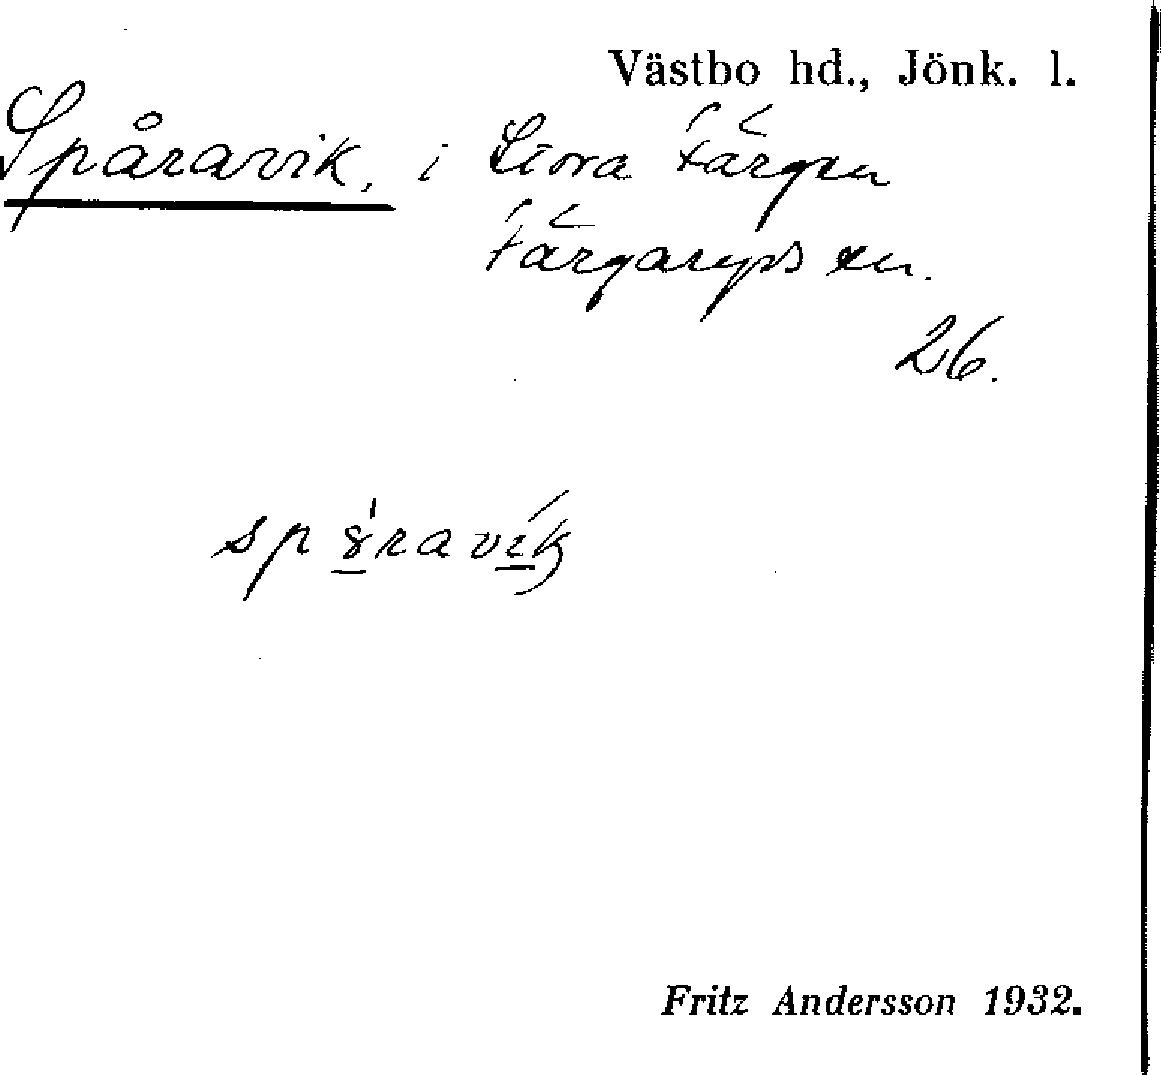 Västbo hd., Jönk. l.
Spåravik, i Färgen
Färgaryds sn.
26.
Fritz Andersson 1932.